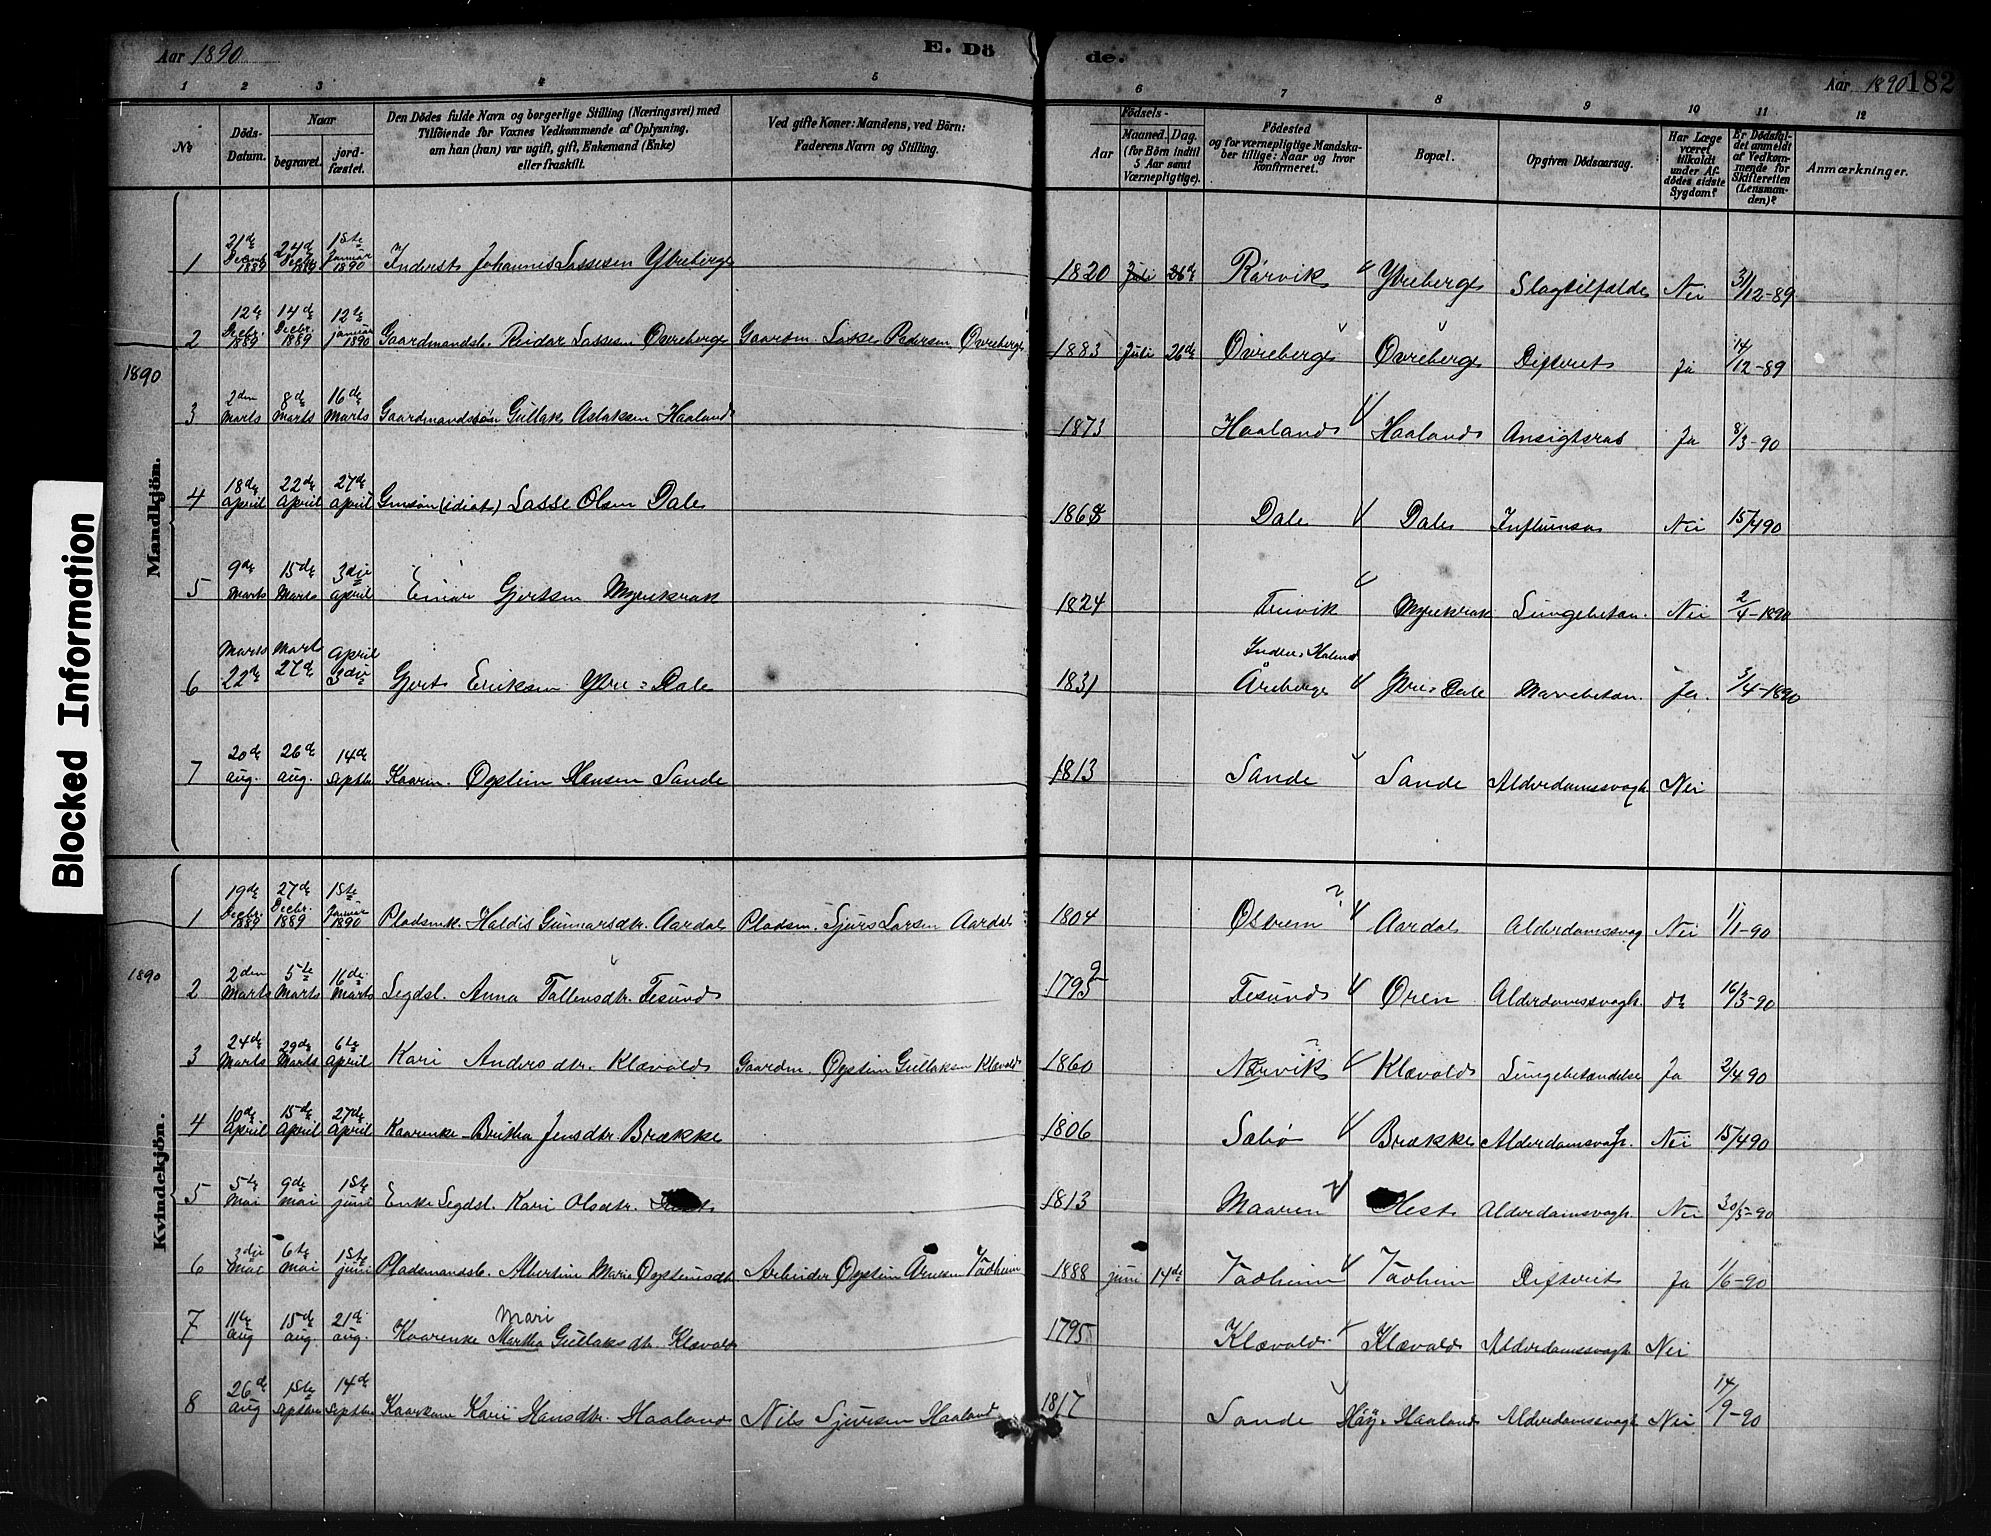 Aar 1890
E. Dö
de.
Aar 1890 182
1 2 3 4 5 6 7 8 9 10 11 12
No
Döds-
Datum.
Naar
begravet.
jord-
fæstet.
Den Dödes fulde Navn og borgerlige Stilling (Næringsvei) med
Tilföiende for Voxnes Vedkommende af Oplysning,
om han (hun) var ugift, gift, Enkemand (Enke)
eller fraskilt.
Ved gifte Koner: Mandens, ved Börn:
Faderens Navn og Stilling.
Födsels-
Aar
Maaned. Dag.
(for Börn indtil
5 Aar samt
Værnepligtige).
Födested
og for værnepligtige Mandska-
ber tillige: Naar og hvor
konfirmeret.
Bopæl.
Opgiven Dödsaarsag.
Har Læge
været
tilkaldt
under Af-
dödes sidste
Sygdom?
Er Dödsfal-
det anmeldt
af Vedkom-
mende for
Skifteretten
(Lensman-
den)?
Anmærkninger.
Mandkjön.
1 21de Decemb 1889 24de Decbr 1889 1ste Januar 1890 Inderst Johannes Lassesen Ytreberge 1820 Juli 26de Rørvik Ytreberge Slagtilfælde Nei 31/12-89
2 12te Decbr. 1889 14de Decbr. 1889 12te januar 1890 Gaardmandsb. Reidar Lassesen Øvreberge Gaardm. Lasse Pedersen Øvreberge 1883 Juli 26de Øvreberge Øvreberge Difterit Ja 14/12-89
1890
3 2den Marts 8de Marts 16de Marts Gaardmandssøn Gullak Aslaksen Haaland 1873 Haaland Haaland Ansigtsros Ja 8/3-90
4 18de april 22de april 27de april Gmsøn (idiot) Lasse Olsen Dale 1868 Dale Dale Influensa Nei 15/4 90
5 9de Marts 15de Marts 3die april Einar Gjertsen Myrekrok 1824 Myrekrok Lungebetæn. Nei 2/4-1890
6 Marts 22de Marts 27de april 3die Gjert Eriksen Ytre-Dale 1831 Åreberge Ytre-Dale Mavebetæn. Ja. 3/4-1890
7 20de aug. 26de aug. 14de Septbr Kaarm. Oystein Hansen Sande 1813 Sande Sande Alderdomssvagh. Nei
Kvindekjön.
1 19de Decbr. 1889 27de Decbr. 1889 1ste Januar 1890 Pladsmk. Haldis Gunnarsdtr. Aardal Pladsm. Sjurs Larsen Aardal 1804 Østrem ? Aardal Alderdomssvag Nei 1/1-90
1890
2 2den Marts 5te Marts 16de Marts Legdsl. Anna Tollevsdtr. Tesund 1795 9 Tesund Øren Alderdomssvagh. do 16/3-90
3 24de Marts 29de Marts 6te april Kari Andersdtr. Klævold Gaardm. Oystein Gullaksen Klævold 1860 Nørvik Klævold Lungebetændelse Ja 2/4 90
4 10de april 15de april 27de april Kaarenke Britha Jensdtr. Brække 1806 Sæbø Brække Alderdomsvagh. Nei 15/4 90
5 5te Mai 9de mai 1ste juni Enke Legdsl. Kari Olsdtr. 1813 Maaren Hest Alderdomsvagh. Nei 30/5-90
6 3die Mai 6te mai 1ste juni Pladsmandsb. Albertine Marie Oysteinsdt. Arbeider Oystein Arnesen Vadheim 1888 juni 14de Vadheim Vadheim Difterit Ja 1/6-90
7 11te aug 15de aug. 21de aug. Kaarenke Mari Martha Gullaksdtr. Klævold 1795 Klævold Klævold Alderdomssvagh Nei
8 26de aug 1ste septbr 14de Septbr Kaarkone Kari Hansdtr. Haaland Nils Sjursen Haaland 1817 Sande Høy-Haaland Alderdomssvagh Nei 14/9-90
Blocked Information